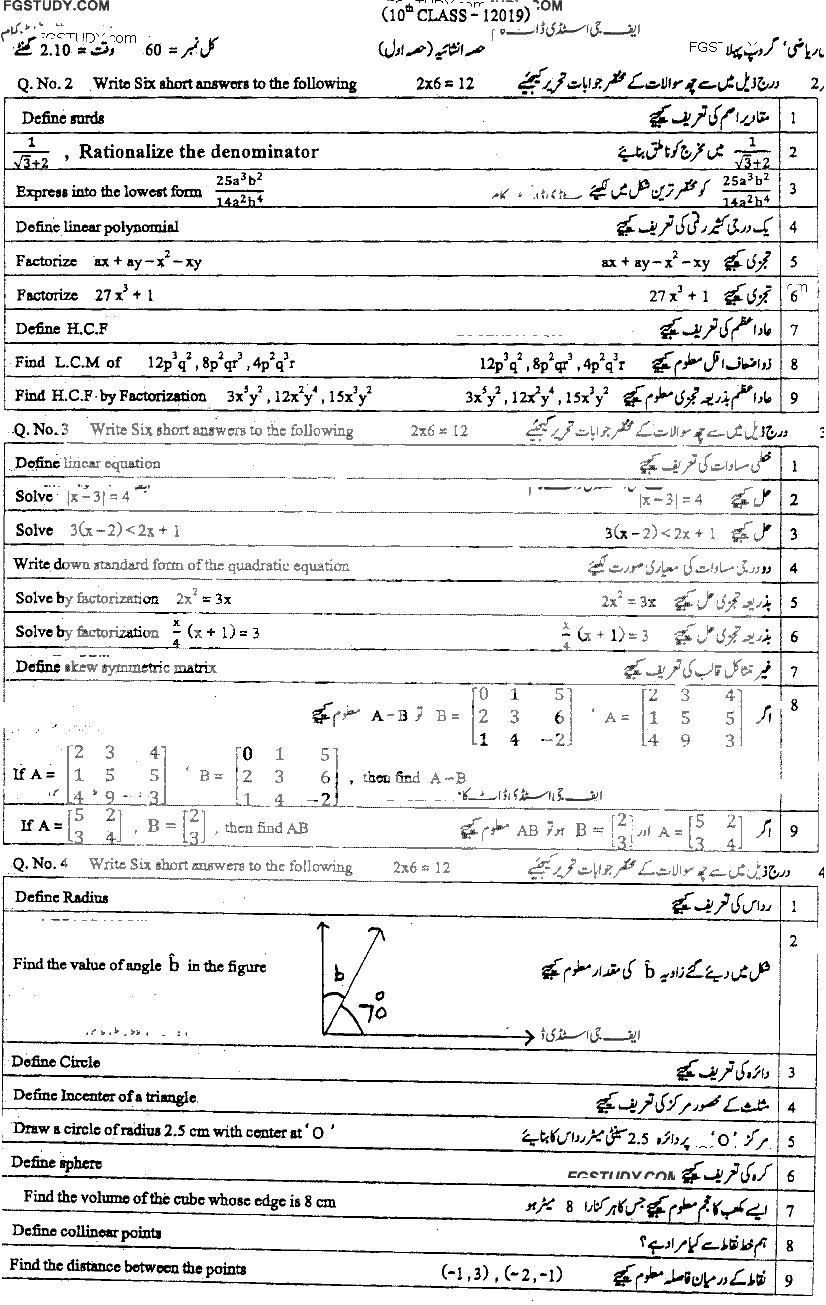 FGSTUDY.COM
(10th CLASS - 12019)
FGSTUDY.com
ایف جی اسٹڈی ڈاٹ
ریاضی، گروپ پہلا FGST حصہ انشائیہ (حصہ اول) کل نمبر = 60 وقت = 2.10 گھنٹے
Q. No. 2 Write Six short answers to the following 2x6 = 12 درج ذیل میں سے چھ سوالات کے مختصر جوابات تحریر کیجئیے 2
Define surds مقادیر اصم کی تعریف کیجئے 1
1/(√3+2) , Rationalize the denominator 1/(√3+2) میں مخرج کو ناطق بنائیے 2
Express into the lowest form 25a³b²/14a²b⁴ 25a³b²/14a²b⁴ کو مختصر ترین شکل میں لکھیئے 3
Define linear polynomial یک درجی کثیر رقمی کی تعریف کیجئے 4
Factorize ax + ay – x² – xy تجزی کیجئے ax + ay – x² – xy 5
Factorize 27x³ + 1 تجزی کیجئے 27x³ + 1 6
Define H.C.F عاد اعظم کی تعریف کیجئے 7
Find L.C.M of 12p³q² , 8p²qr³ , 4p²q³r ذو اضعاف اقل معلوم کیجئے 12p³q² , 8p²qr³ , 4p²q³r 8
Find H.C.F by Factorization 3x⁵y² , 12x²y⁴ , 15x³y² عاد اعظم بذریعہ تجزی معلوم کیجئے 3x⁵y² , 12x²y⁴ , 15x³y² 9
Q. No. 3 Write Six short answers to the following 2x6 = 12 درج ذیل میں سے چھ سوالات کے مختصر جوابات تحریر کیجئیے 3
Define linear equation خطی مساوات کی تعریف کیجئے 1
Solve |x – 3| = 4 حل کیجئے |x – 3| = 4 2
Solve 3(x – 2) < 2x + 1 حل کیجئے 3(x – 2) < 2x + 1 3
Write down standard form of the quadratic equation دو درجی مساوات کی معیاری صورت لکھیئے 4
Solve by factorization 2x² = 3x بذریعہ تجزی حل کیجئے 2x² = 3x 5
Solve by factorization x/4 (x + 1) = 3 بذریعہ تجزی حل کیجئے x/4 (x + 1) = 3 6
Define skew symmetric matrix غیر متشاکل قالب کی تعریف کیجئے 7
اگر A = [2 3 4; 1 5 5; 4 9 3] ، B = [0 1 5; 2 3 6; 1 4 -2] تو A – B معلوم کیجئے 8
If A = [2 3 4; 1 5 5; 4 9 3] ، B = [0 1 5; 2 3 6; 1 4 -2] , then find A – B
ایف جی اسٹڈی ڈاٹ کا
If A = [5 2; 3 4] , B = [2; 3] , then find AB اگر A = [5 2; 3 4] اور B = [2; 3] ہو تو AB معلوم کیجئے 9
Q. No. 4 Write Six short answers to the following 2x6 = 12 درج ذیل میں سے چھ سوالات کے مختصر جوابات تحریر کیجئیے 4
Define Radius رداس کی تعریف کیجئے 1
Find the value of angle b̂ in the figure شکل میں دیئے گئے زاویہ b̂ کی مقدار معلوم کیجئے 2
b
70°
ایف جی اسٹڈی ڈ
Define Circle دائرہ کی تعریف کیجئے 3
Define Incenter of a triangle مثلث کے محصور مرکز کی تعریف کیجئے 4
Draw a circle of radius 2.5 cm with center at ' O ' مرکز 'O' پر دائرہ 2.5 سینٹی میٹر رداس کا بنائیے 5
Define sphere کرہ کی تعریف کیجئے FGSTUDY.COM 6
Find the volume of the cube whose edge is 8 cm ایسے مکعب کا حجم معلوم کیجئے جس کا ہر کنارا 8 میٹر ہو 7
Define collinear points ہم خط نقاط سے کیا مراد ہے؟ 8
Find the distance between the points (–1,3) , (–2,–1) نقاط کے درمیان فاصلہ معلوم کیجئے 9